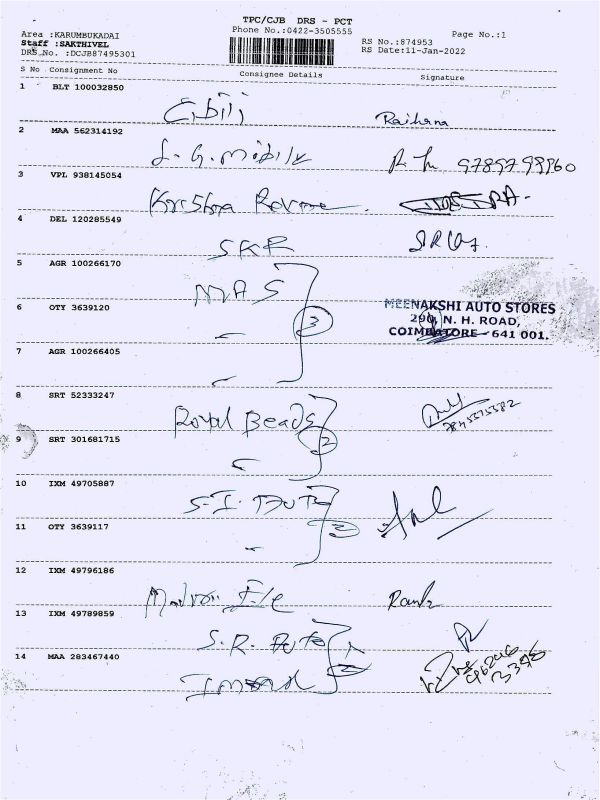 TPC/CJB DRS - PCT
Phone No.:0422-3505555
Page No.:1
Area :KARUMBUKADAI
Staff :SAKTHIVEL
DRS No. :DCJB87495301
RS No.:874953
RS Date:11-Jan-2022
S No Consignment No Consignee Details Signature
1 BLT 100032850
Raihana
2 MAA 562314192
S. G. Mobile 9789799960
3 VPL 938145054
Krishna
4 DEL 120285549
SKR
5 AGR 100266170
MAS
6 OTY 3639120
3
MEENAKSHI AUTO STORES
290, N. H. ROAD,
COIMBATORE - 641 001.
7 AGR 100266405
8 SRT 52333247
Royal Beads
9 SRT 301681715
2
10 IXM 49705887
S. I.
11 OTY 3639117
2
12 IXM 49796186
13 IXM 49789859
S. R. Auto
14 MAA 283467440
2